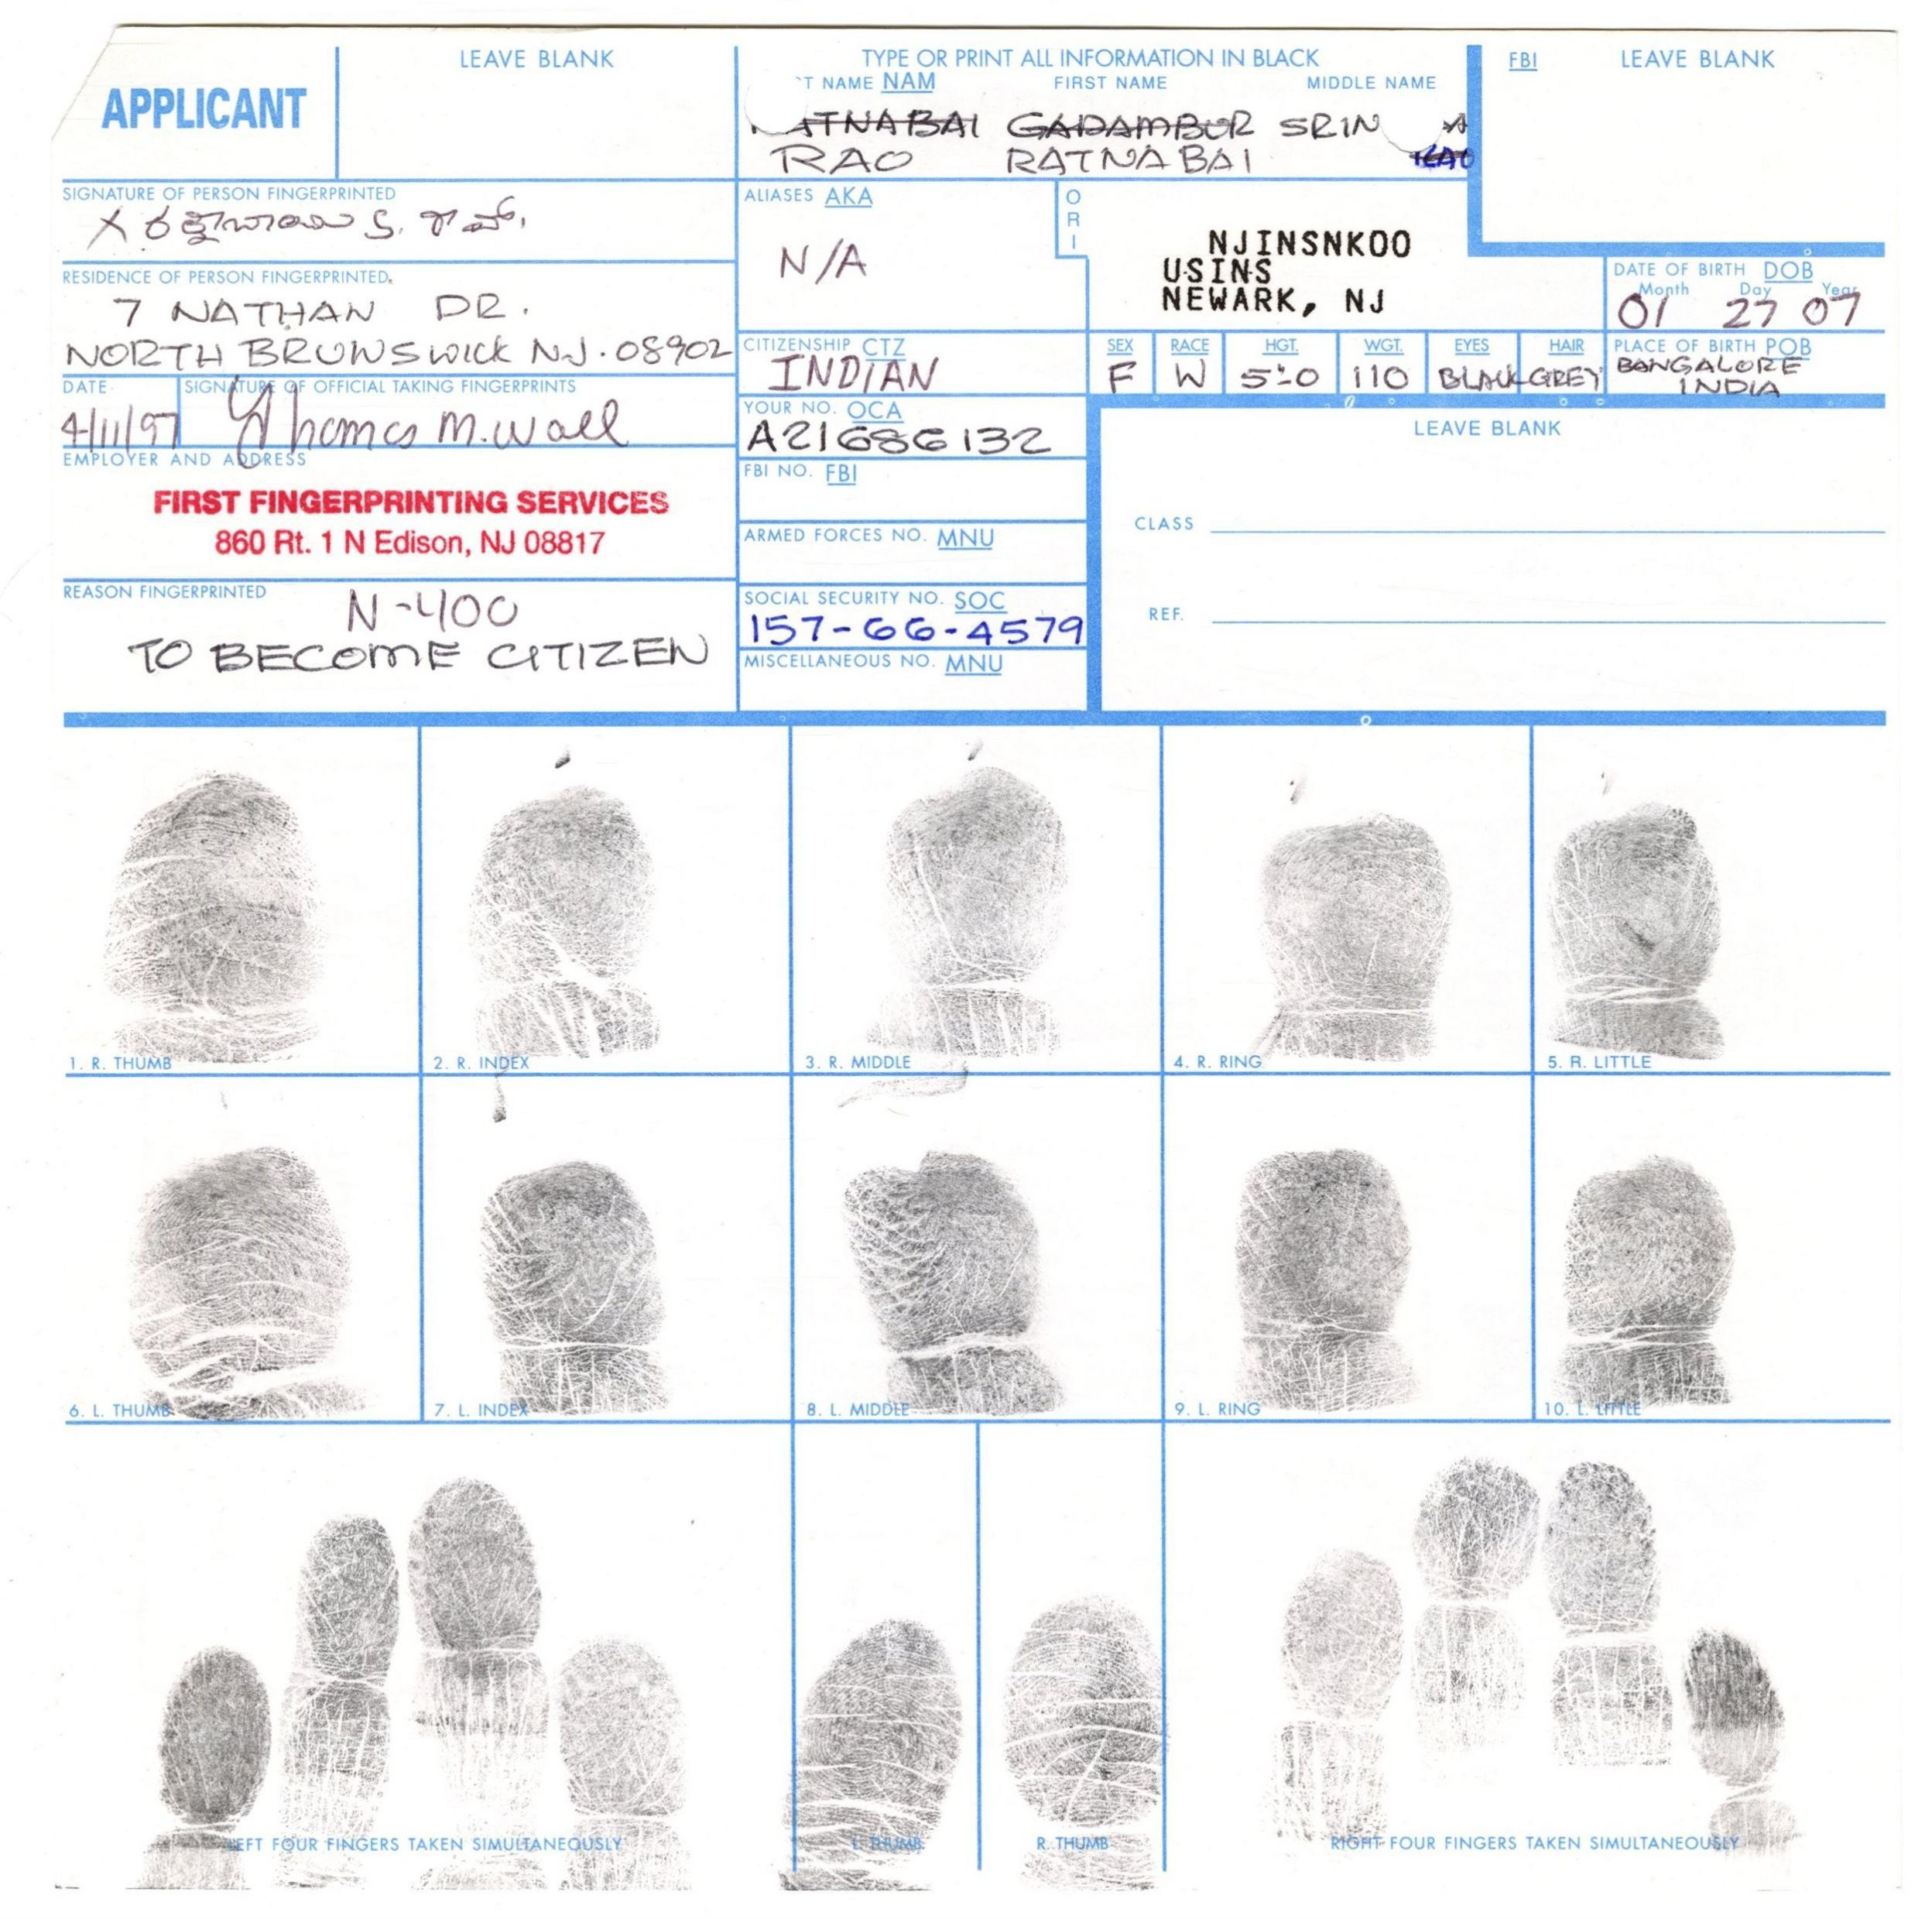 APPLICANT
LEAVE BLANK
TYPE OR PRINT ALL INFORMATION IN BLACK
T NAME NAM FIRST NAME MIDDLE NAME
ATNABAI GADAMBUR SRIN
RAO RATNABAI
FBI LEAVE BLANK
SIGNATURE OF PERSON FINGERPRINTED
X
ALIASES AKA
N/A
ORI
NJINSNK00
USINS
NEWARK, NJ
RESIDENCE OF PERSON FINGERPRINTED
7 NATHAN DR.
NORTH BRUNSWICK NJ. 08902
DATE OF BIRTH DOB
Month Day Year
01 27 07
CITIZENSHIP CTZ
INDIAN
SEX RACE HGT. WGT. EYES HAIR
F W 5'-0 110 BLACK GREY
PLACE OF BIRTH POB
BANGALORE
INDIA
DATE SIGNATURE OF OFFICIAL TAKING FINGERPRINTS
4/11/97 Thomas M. Wall
YOUR NO. OCA
A21686132
LEAVE BLANK
EMPLOYER AND ADDRESS
FIRST FINGERPRINTING SERVICES
860 Rt. 1 N Edison, NJ 08817
FBI NO. FBI
ARMED FORCES NO. MNU
CLASS
REASON FINGERPRINTED
N-400
TO BECOME CITIZEN
SOCIAL SECURITY NO. SOC
157-66-4579
REF.
MISCELLANEOUS NO. MNU
1. R. THUMB
2. R. INDEX
3. R. MIDDLE
4. R. RING
5. R. LITTLE
6. L. THUMB
7. L. INDEX
8. L. MIDDLE
9. L. RING
10. L. LITTLE
LEFT FOUR FINGERS TAKEN SIMULTANEOUSLY
L. THUMB
R. THUMB
RIGHT FOUR FINGERS TAKEN SIMULTANEOUSLY